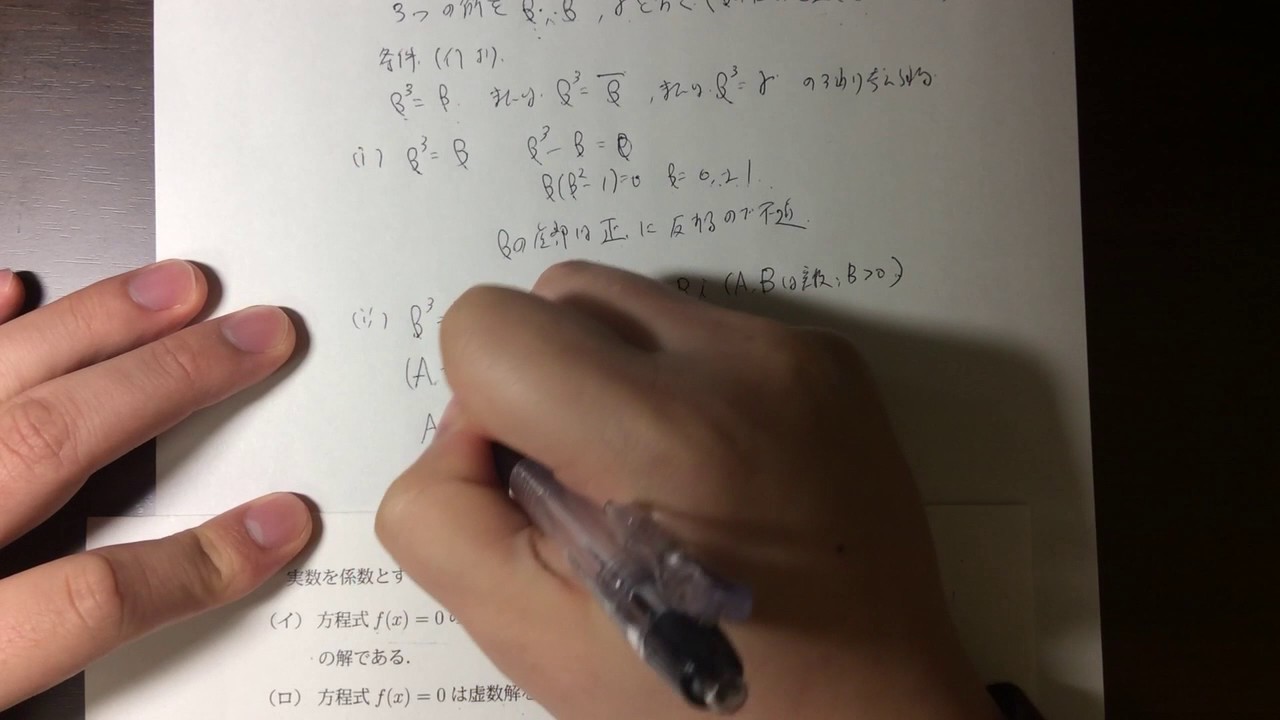 3つの解を β, β̄, γ とおく(
条件(イ)より.
β³=β. または. β³=β̄, または. β³=γ の3通り考えられる.
(i) β³=β β³-β=0
β(β²-1)=0 β=0,±1.
βの虚部は正.に反するので不適.
(ii) β³= i (A,Bは実数;B>0)
(A
A
実数を係数とす
(イ) 方程式 f(x) = 0 の
の解である.
(ロ) 方程式 f(x) = 0 は虚数解を